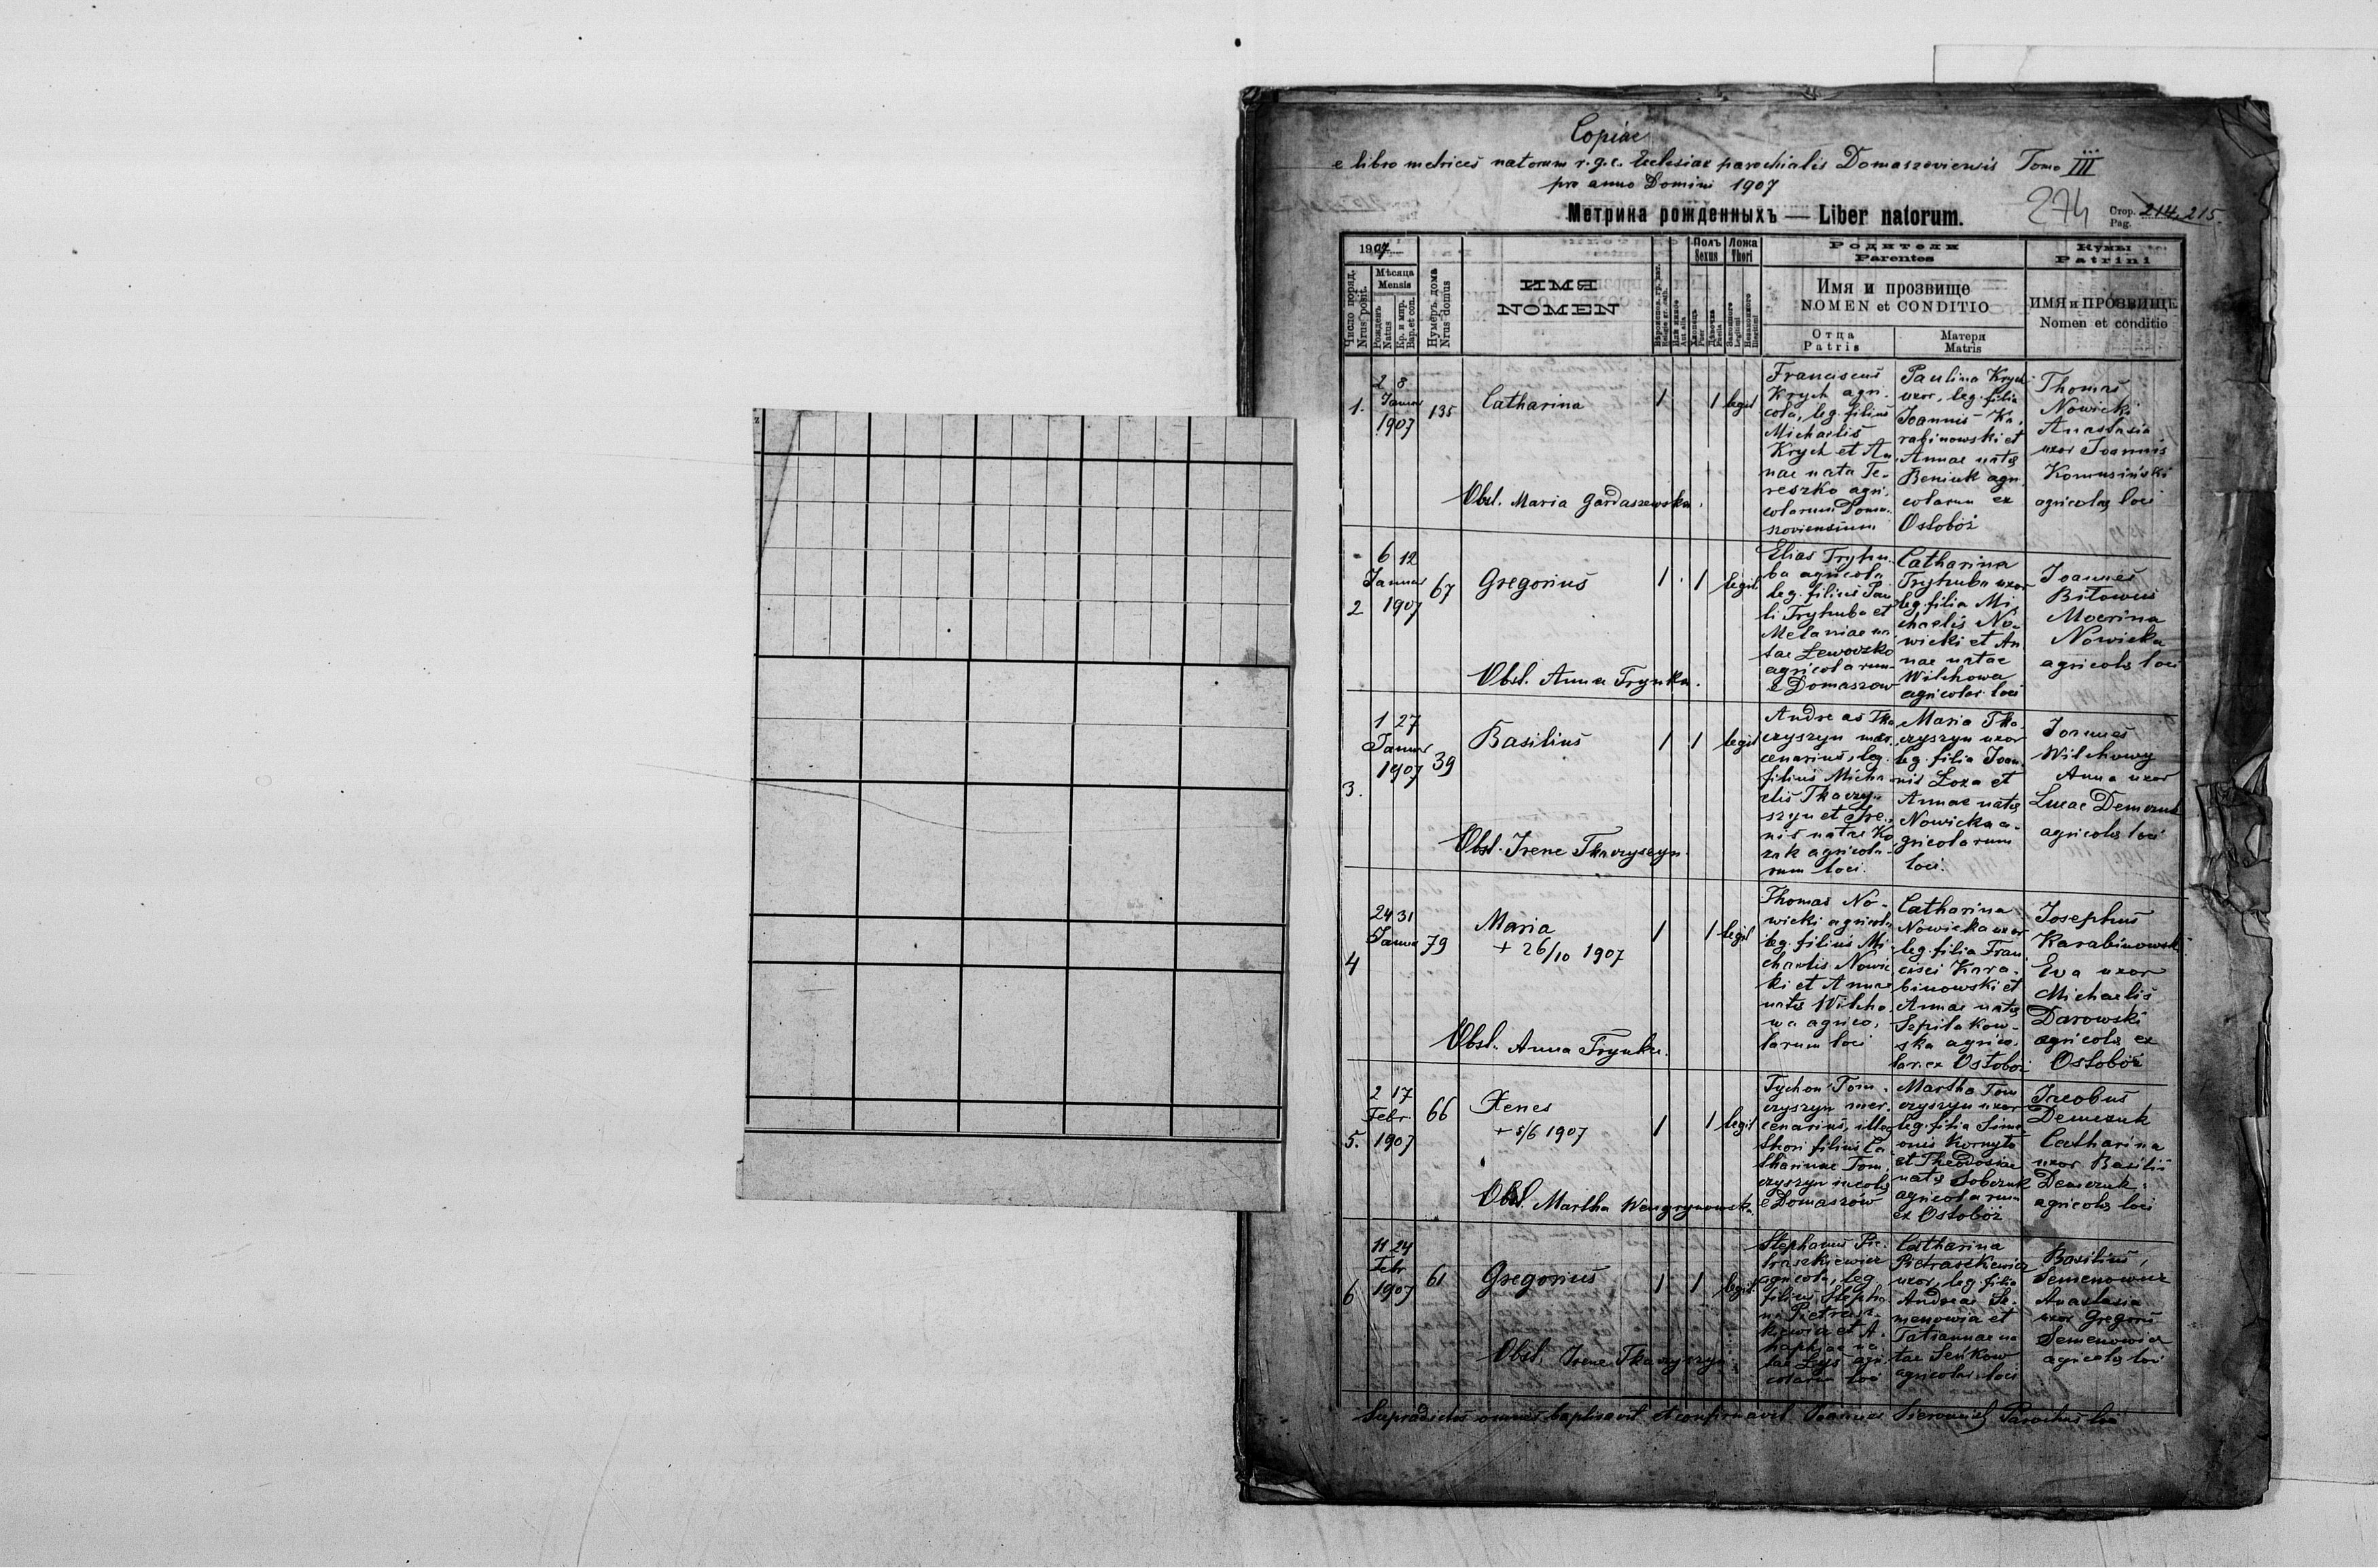 Copiae
e libro metrices natorum r.g.c. Ecclesiae parochialis Domaszoviensis Tomo III
pro anno Domini 1907
Метрика рожденныхъ — Liber natorum.
274
Стор. 214, 215
Pag.
1907
Число поряд.
Nrus posit.
Мѣсяца
Mensis
Рожденъ
Natus
Кр. и мир.
Bap. et con.
Нумеръ дома
Nrus domus
ИМЯ
NOMEN
Полъ
Sexus
Хлопецъ
Puer
Дѣвочка
Puella
Ложа
Thori
Законного
Legitimi
Незаконного
Illegitimi
Родители
Parentes
Имя и прозвище
NOMEN et CONDITIO
Отца
Patris
Матери
Matris
Кумы
Patrini
ИМЯ и ПРОЗВИЩЕ
Nomen et conditio
1.
2 8
Januar
1907
135
Catharina
1 1 legit
Obst. Maria Gardaszewska.
Franciscus
Krych agri-
cola, leg. filius
Michaelis
Krych et An-
nae nata Te-
reszko agri-
colarum Doma-
szoviensium
Paulina Krych
uxor, leg. filia
Joannis Ka-
rabinowski et
Annae natae
Beniuk agri
colarum ex
Ostobóż
Thomas
Nowicki
Anastasia
uxor Joannis
Komusiński
agricolae loci
2
6 12
Januar
1907
67
Gregorius
1 1 legit
Obst. Anna Trynka.
Elias Tryhu-
ba agricola
leg. filius Pau
li Tryhuba et
Melaniae na-
tae Lewoczko
agricolarum
e Domaszow
Catharina
Tryhuba uxor
leg. filia Mi-
chaelis No-
wicki et An
nae natae
Wilchowa
agricolar. loci
Joannes
Bitowus
Nowicka
agricolae loci
3.
1 27
Januar
1907
39
Basilius
1 1 legit
Obst. Irene Tkaczyszyn.
Andreas Tka
czyszyn mer-
cenarius, leg.
filius Micha
elis Tkaczy-
szyn et Ire-
nis natae Ko
zak agricola-
rum loci.
Maria Tka
czyszyn uxor
leg. filia Joan-
nis Loza et
Annae natae
Nowicka a-
gricolarum
loci.
Joannes
Wilchowy
Anna uxor
Lucae Demczuk
agricolae loci
4
24 31
Januar
79
Maria
+ 26/10 1907
1 1 legit
Obst. Anna Trynka.
Thomas No-
wicki agricola
leg. filius Mi-
chaelis Nowic
ki et Annae
natae Wilcho
wa agrico-
larum loci
Catharina
Nowicka uxor
leg. filia Fran
cisci Kara-
binowski et
Annae natae
Sepilakow-
ska agrico-
lar. ex Ostobóż
Josephus
Karabinowski
Eva uxor
Michaelis
Darowski
agricolae ex
Ostobóż
5.
2 17
Febr.
1907
66
Xenes
+ 5/6 1907
1 1 legit
Obst. Martha Wengrynowska.
Tychon Tom-
czyszyn mer-
cenarius, illeg
thori filius Ca
tharinae Tom
czyszyn incolae
e Domaszów
Martha Tom
czyszyn uxor
leg. filia Sime
onis Kornyta
et Theodosiae
natae Sobczuk
agricolarum
ex Ostobóż
Jacobus
Demczuk
Catharina
uxor Basilii
Demczuk
agricolae loci
6
11 24
Febr
1907
61
Gregorius
1 1 legit.
Obst. Irene Tkaczyszyn
Stephanus Pie-
traszkiewicz
agricola, leg.
filius Stepha
ni Pietrasz-
kiewicz et A-
haphiae na-
tae Lys agri
colarum loci
Catharina
Pietraszkiewicz
uxor, leg. filia
Andreae Se-
menowicz et
Tatiannae na
tae Seńkow
agricolar. loci
Basilius
Semenowicz
Anastasia
uxor Gregorii
Semenowicz
agricolae loci
Supradictos omnes baptisavit et confirmavit Joannes Parochus loci